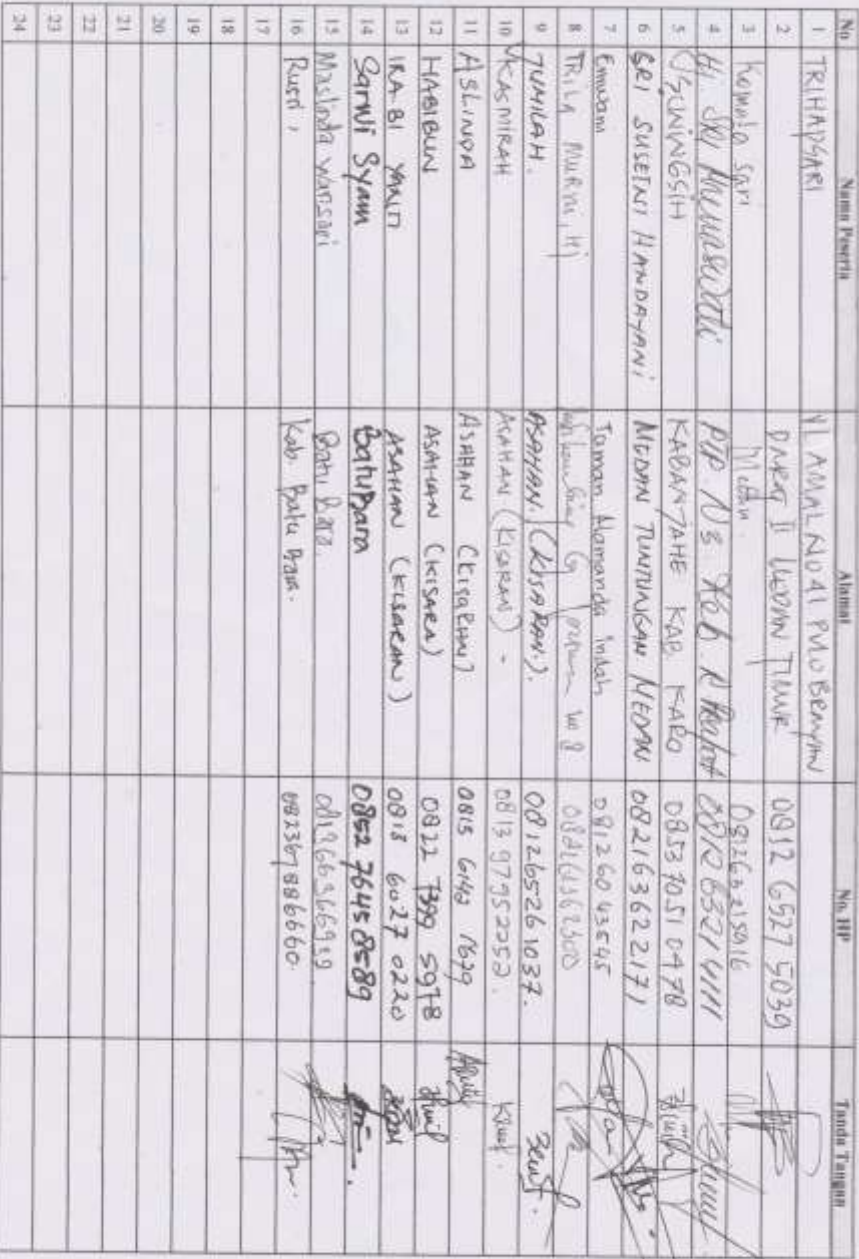 No Nama Peserta Alamat No. HP Tanda Tangan
1 TRIHAPSARI JL AMAL NO 41 PULO BRAYAN
2 DARAT II MEDAN TIMUR 0812 6527 5039
3 Komala Sari Medan.
4 Hj SRI PTP. N3 Keb. R 0812 6321 4111
5 SUNINGSIH KABANJAHE KAB. KARO 0853 7051 0478
6 SRI SUSETNI HANDAYANI MEDAN TUNTUNGAN MEDAN 082163622171
7 Ernidani Taman Homanda indah 0812 60 43545
8 TRILA MURNI, Hj
9 JUMILAH. ASAHAN. (KISARAN.). 081265261037.
10 KASMIRAH ASAHAN (KISARAN). 0813 97952252.
11 ASLINDA ASAHAN (KISARAN) 0815 6140 1629
12 HABIBUN ASAHAN (KISARA) 0822 7399 5978
13 IRA BI YANTI ASAHAN (KISARAN) 0813 6027 0220
14 Sarwi Syam BatuBara 0852 7645 8589
15 Maslinda warisari Batu Bara. 081366366939
16 Rusti, Kab. Batu Bara. 082367886660.
17
18
19
20
21
22
23
24